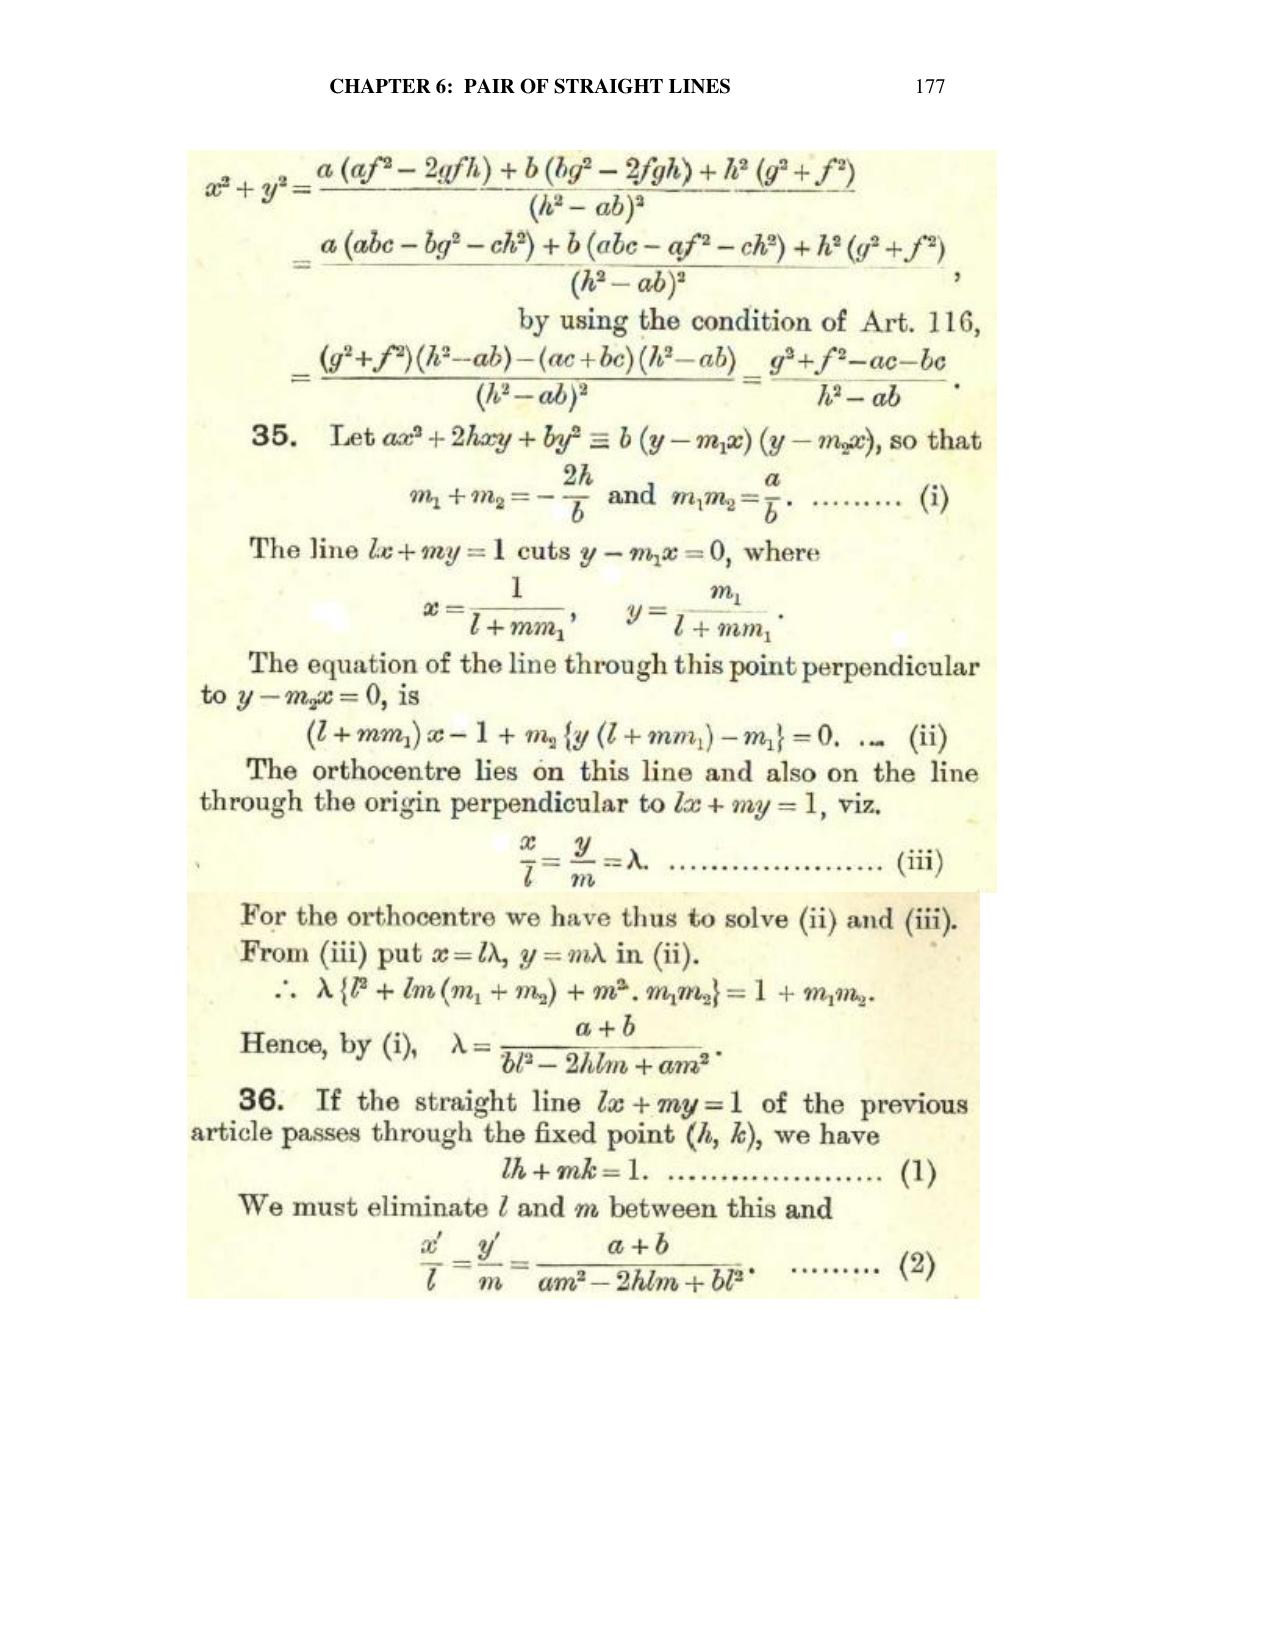 CHAPTER 6: PAIR OF STRAIGHT LINES 177
x² + y² = \frac{a (af² − 2gfh) + b (bg² − 2fgh) + h² (g² + f²)}{(h² − ab)²}
= \frac{a (abc − bg² − ch²) + b (abc − af² − ch²) + h² (g² + f²)}{(h² − ab)²},
by using the condition of Art. 116,
= \frac{(g²+f²)(h²−ab)−(ac+bc)(h²−ab)}{(h²−ab)²} = \frac{g²+f²−ac−bc}{h² − ab}.
35. Let ax² + 2hxy + by² ≡ b (y − m₁x) (y − m₂x), so that
m₁ + m₂ = − \frac{2h}{b} and m₁m₂ = \frac{a}{b}. ......... (i)
The line lx + my = 1 cuts y − m₁x = 0, where
x = \frac{1}{l + mm₁}, y = \frac{m₁}{l + mm₁}.
The equation of the line through this point perpendicular
to y − m₂x = 0, is
(l + mm₁) x − 1 + m₂ {y (l + mm₁) − m₁} = 0. ... (ii)
The orthocentre lies on this line and also on the line
through the origin perpendicular to lx + my = 1, viz.
\frac{x}{l} = \frac{y}{m} = λ. ..................... (iii)
For the orthocentre we have thus to solve (ii) and (iii).
From (iii) put x = lλ, y = mλ in (ii).
∴ λ {l² + lm (m₁ + m₂) + m² . m₁m₂} = 1 + m₁m₂.
Hence, by (i), λ = \frac{a + b}{bl² − 2hlm + am²}.
36. If the straight line lx + my = 1 of the previous
article passes through the fixed point (h, k), we have
lh + mk = 1. ..................... (1)
We must eliminate l and m between this and
\frac{x′}{l} = \frac{y′}{m} = \frac{a + b}{am² − 2hlm + bl²}. ......... (2)